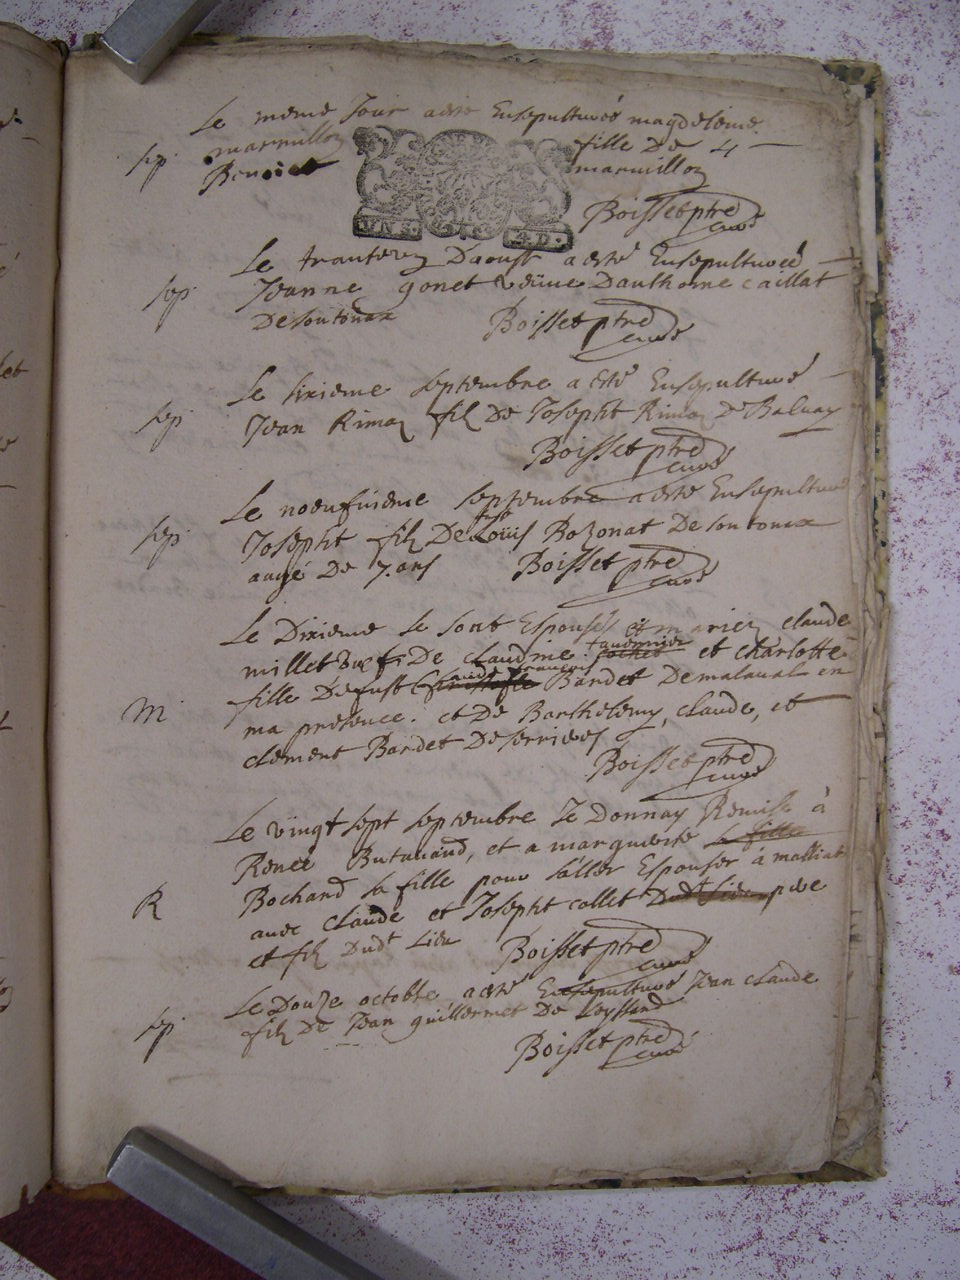 Le meme Jour a esté Ensepulturéé magdeleine
sep. marmillon fille De 4
Benoict marmillon
VN S. 4 D.
Boisset ptre
curé
Le tranteun Daoust a esté Ensepulturéé
sep. Jeanne gonet veüue Danthoine caillat
De soutonax Boisset ptre
curé
Le sixieme septembre a esté Ensepulturé
sep. Jean Rimoz filz De Josepht Rimoz De Baluay
Boisset ptre
curé
Le noeufuieme septembre a esté Ensepulturé
sep. Josepht filz De Loüis Bozonat De soutonax
aagé De 7. ans Boisset ptre
curé
Le Dixieme se sont Espousés et mariez claude
millet De claudme tauernier et charlotte
fille De fust françois Bardet De malaual en
M ma presence. et De Barthelemy, claude, et
clement Bardet De serrieres
Boisset ptre
curé
Le vingt sept septembre Je Donnay Remise à
Reneé Butauand, et a marguerite la fille
R Bochand sa fille pour s'aller Espouser à malliat
auec claude et Josepht collet Dudt Lieu pere
et filz Dudt Lieu Boisset ptre
curé
Le Douze octobre a esté Ensepulturé Jean claude
sep. filz De Jean guillermet De Leyssard
Boisset ptre
curé